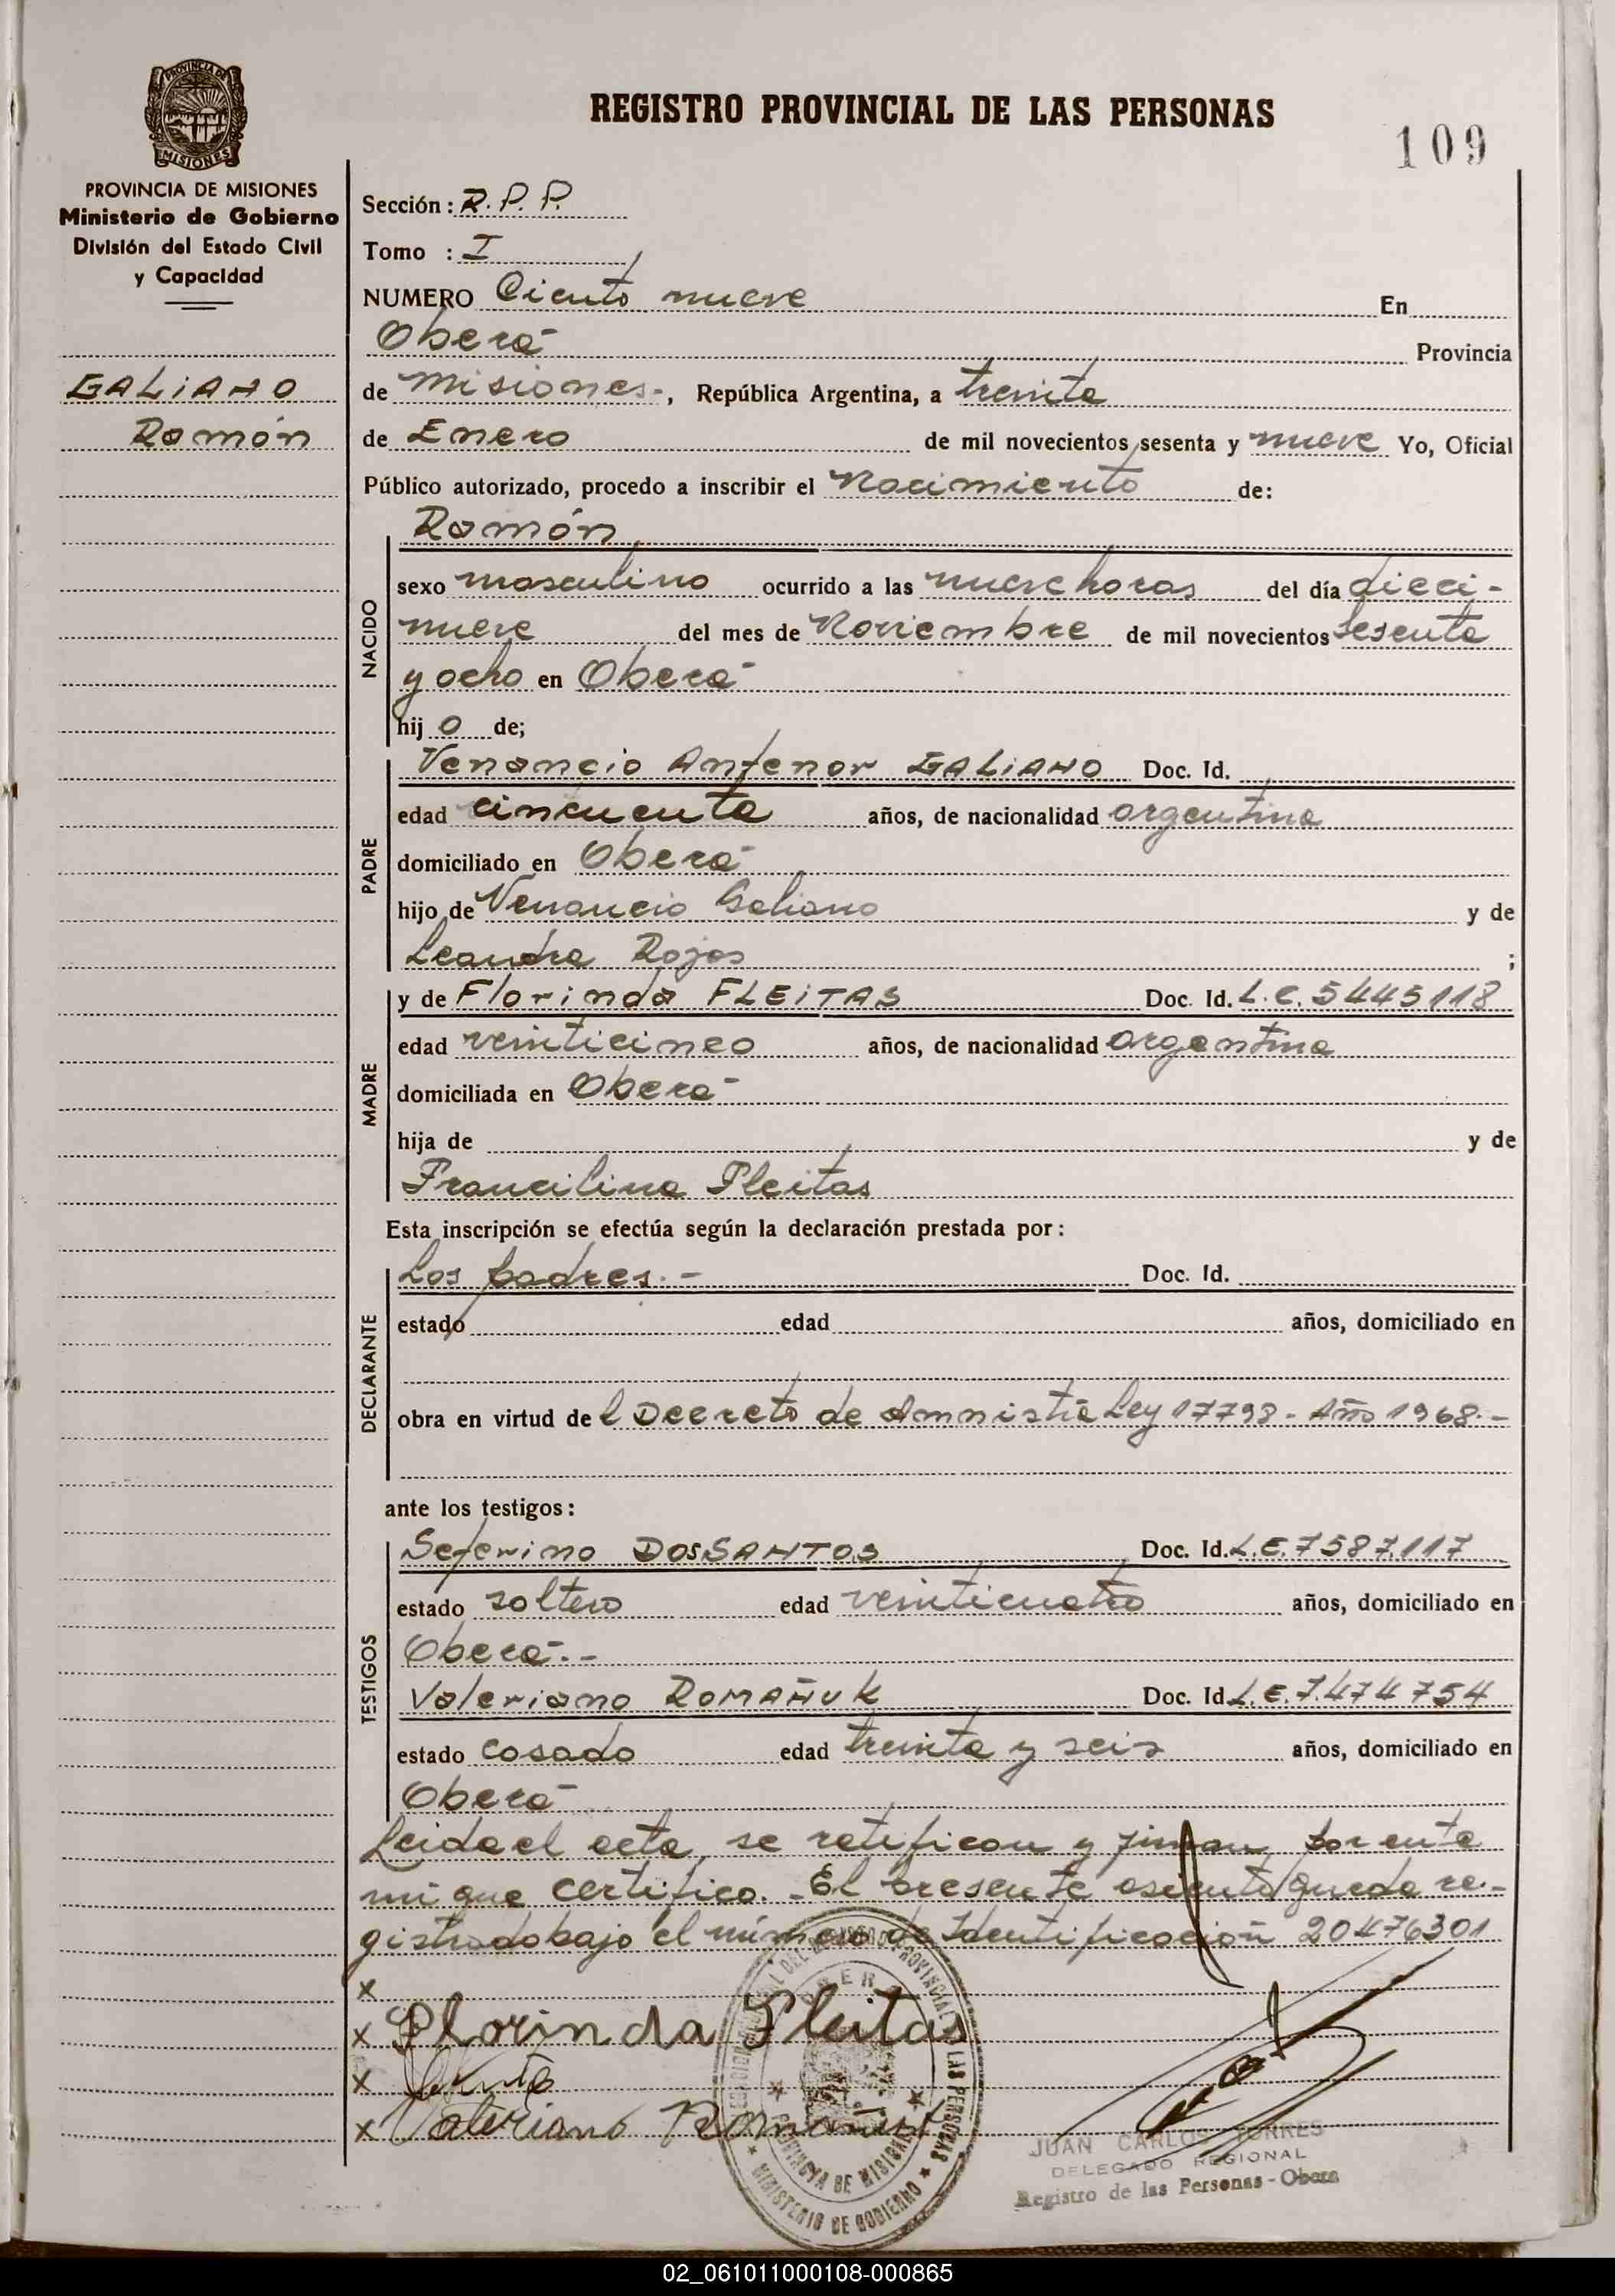 REGISTRO PROVINCIAL DE LAS PERSONAS
109
PROVINCIA DE MISIONES
MISIONES
PROVINCIA DE MISIONES
Ministerio de Gobierno
División del Estado Civil
y Capacidad
GALIANO
Ramón
Sección: R.P.P.
Tomo : I
NUMERO Ciento nueve En
Oberá Provincia
de Misiones-, República Argentina, a treinta
de Enero de mil novecientos sesenta y nueve Yo, Oficial
Público autorizado, procedo a inscribir el Nacimiento de:
NACIDO
Ramón
sexo masculino ocurrido a las nueve horas del día dieci-
nueve del mes de Noviembre de mil novecientos sesenta
y ocho en Oberá
hij o de;
PADRE
Venancio Antenor GALIANO Doc. Id.
edad cincuenta años, de nacionalidad argentina
domiciliado en Oberá
hijo de Venancio Galiano y de
Leandra Rojas ;
MADRE
y de Florinda FLEITAS Doc. Id. L.C. 5445118
edad veinticinco años, de nacionalidad argentina
domiciliada en Oberá
hija de y de
Francilina Fleitas
Esta inscripción se efectúa según la declaración prestada por:
DECLARANTE
Los padres.- Doc. Id.
estado edad años, domiciliado en
obra en virtud de l Decreto de Amnistía Ley 17798- Año 1968.-
ante los testigos:
TESTIGOS
Seferino DOSSANTOS Doc. Id. L.E. 7587.117
estado soltero edad veinticuatro años, domiciliado en
Oberá.-
Valeriano ROMAÑUK Doc. Id. L.E. 7.474754
estado casado edad treinta y seis años, domiciliado en
Oberá
Leida el acta, se ratifican y firman por ante
mi que certifico.- El presente asiento queda re-
gistrado bajo el número de Identificación 20476301
x
x Florinda Fleitas
x
x Valeriano Romañuk
PROVINCIA DE MISIONES
MINISTERIO DE GOBIERNO
JUAN CARLOS TORRES
DELEGADO REGIONAL
Registro de las Personas - Obera
02_061011000108-000865